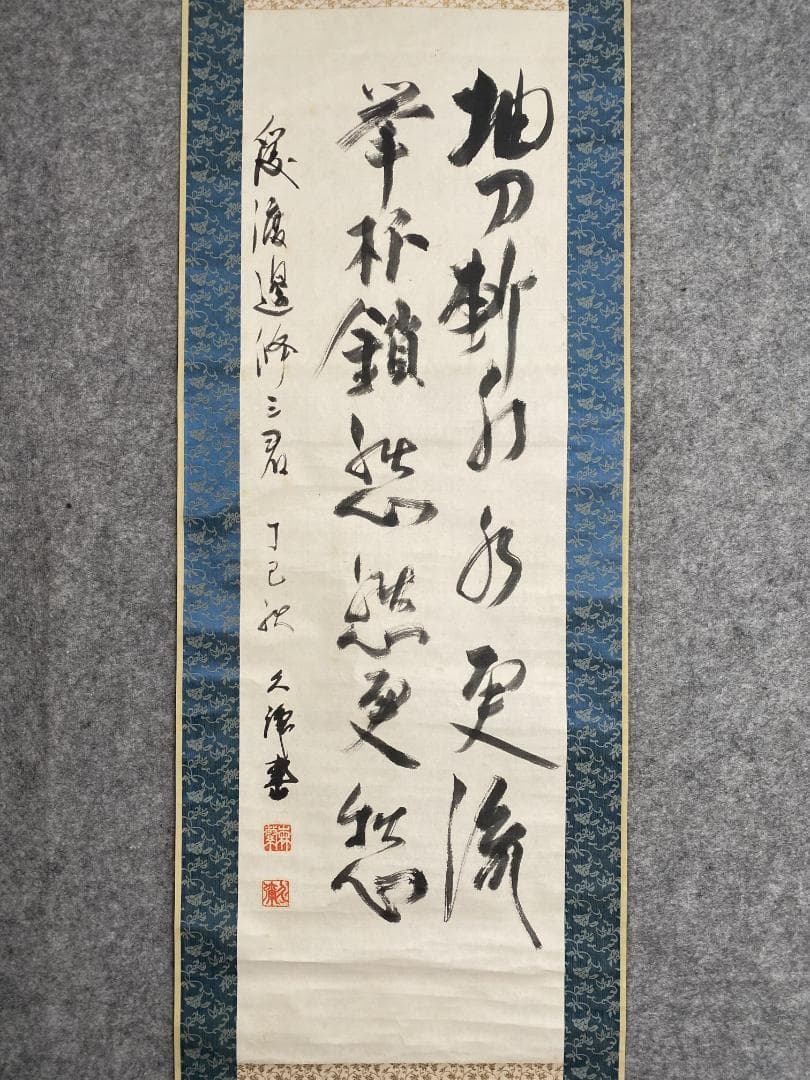 抽刀斬水水更流
挙杯鎖愁愁更愁
渡邊修三君 丁巳秋 久 書